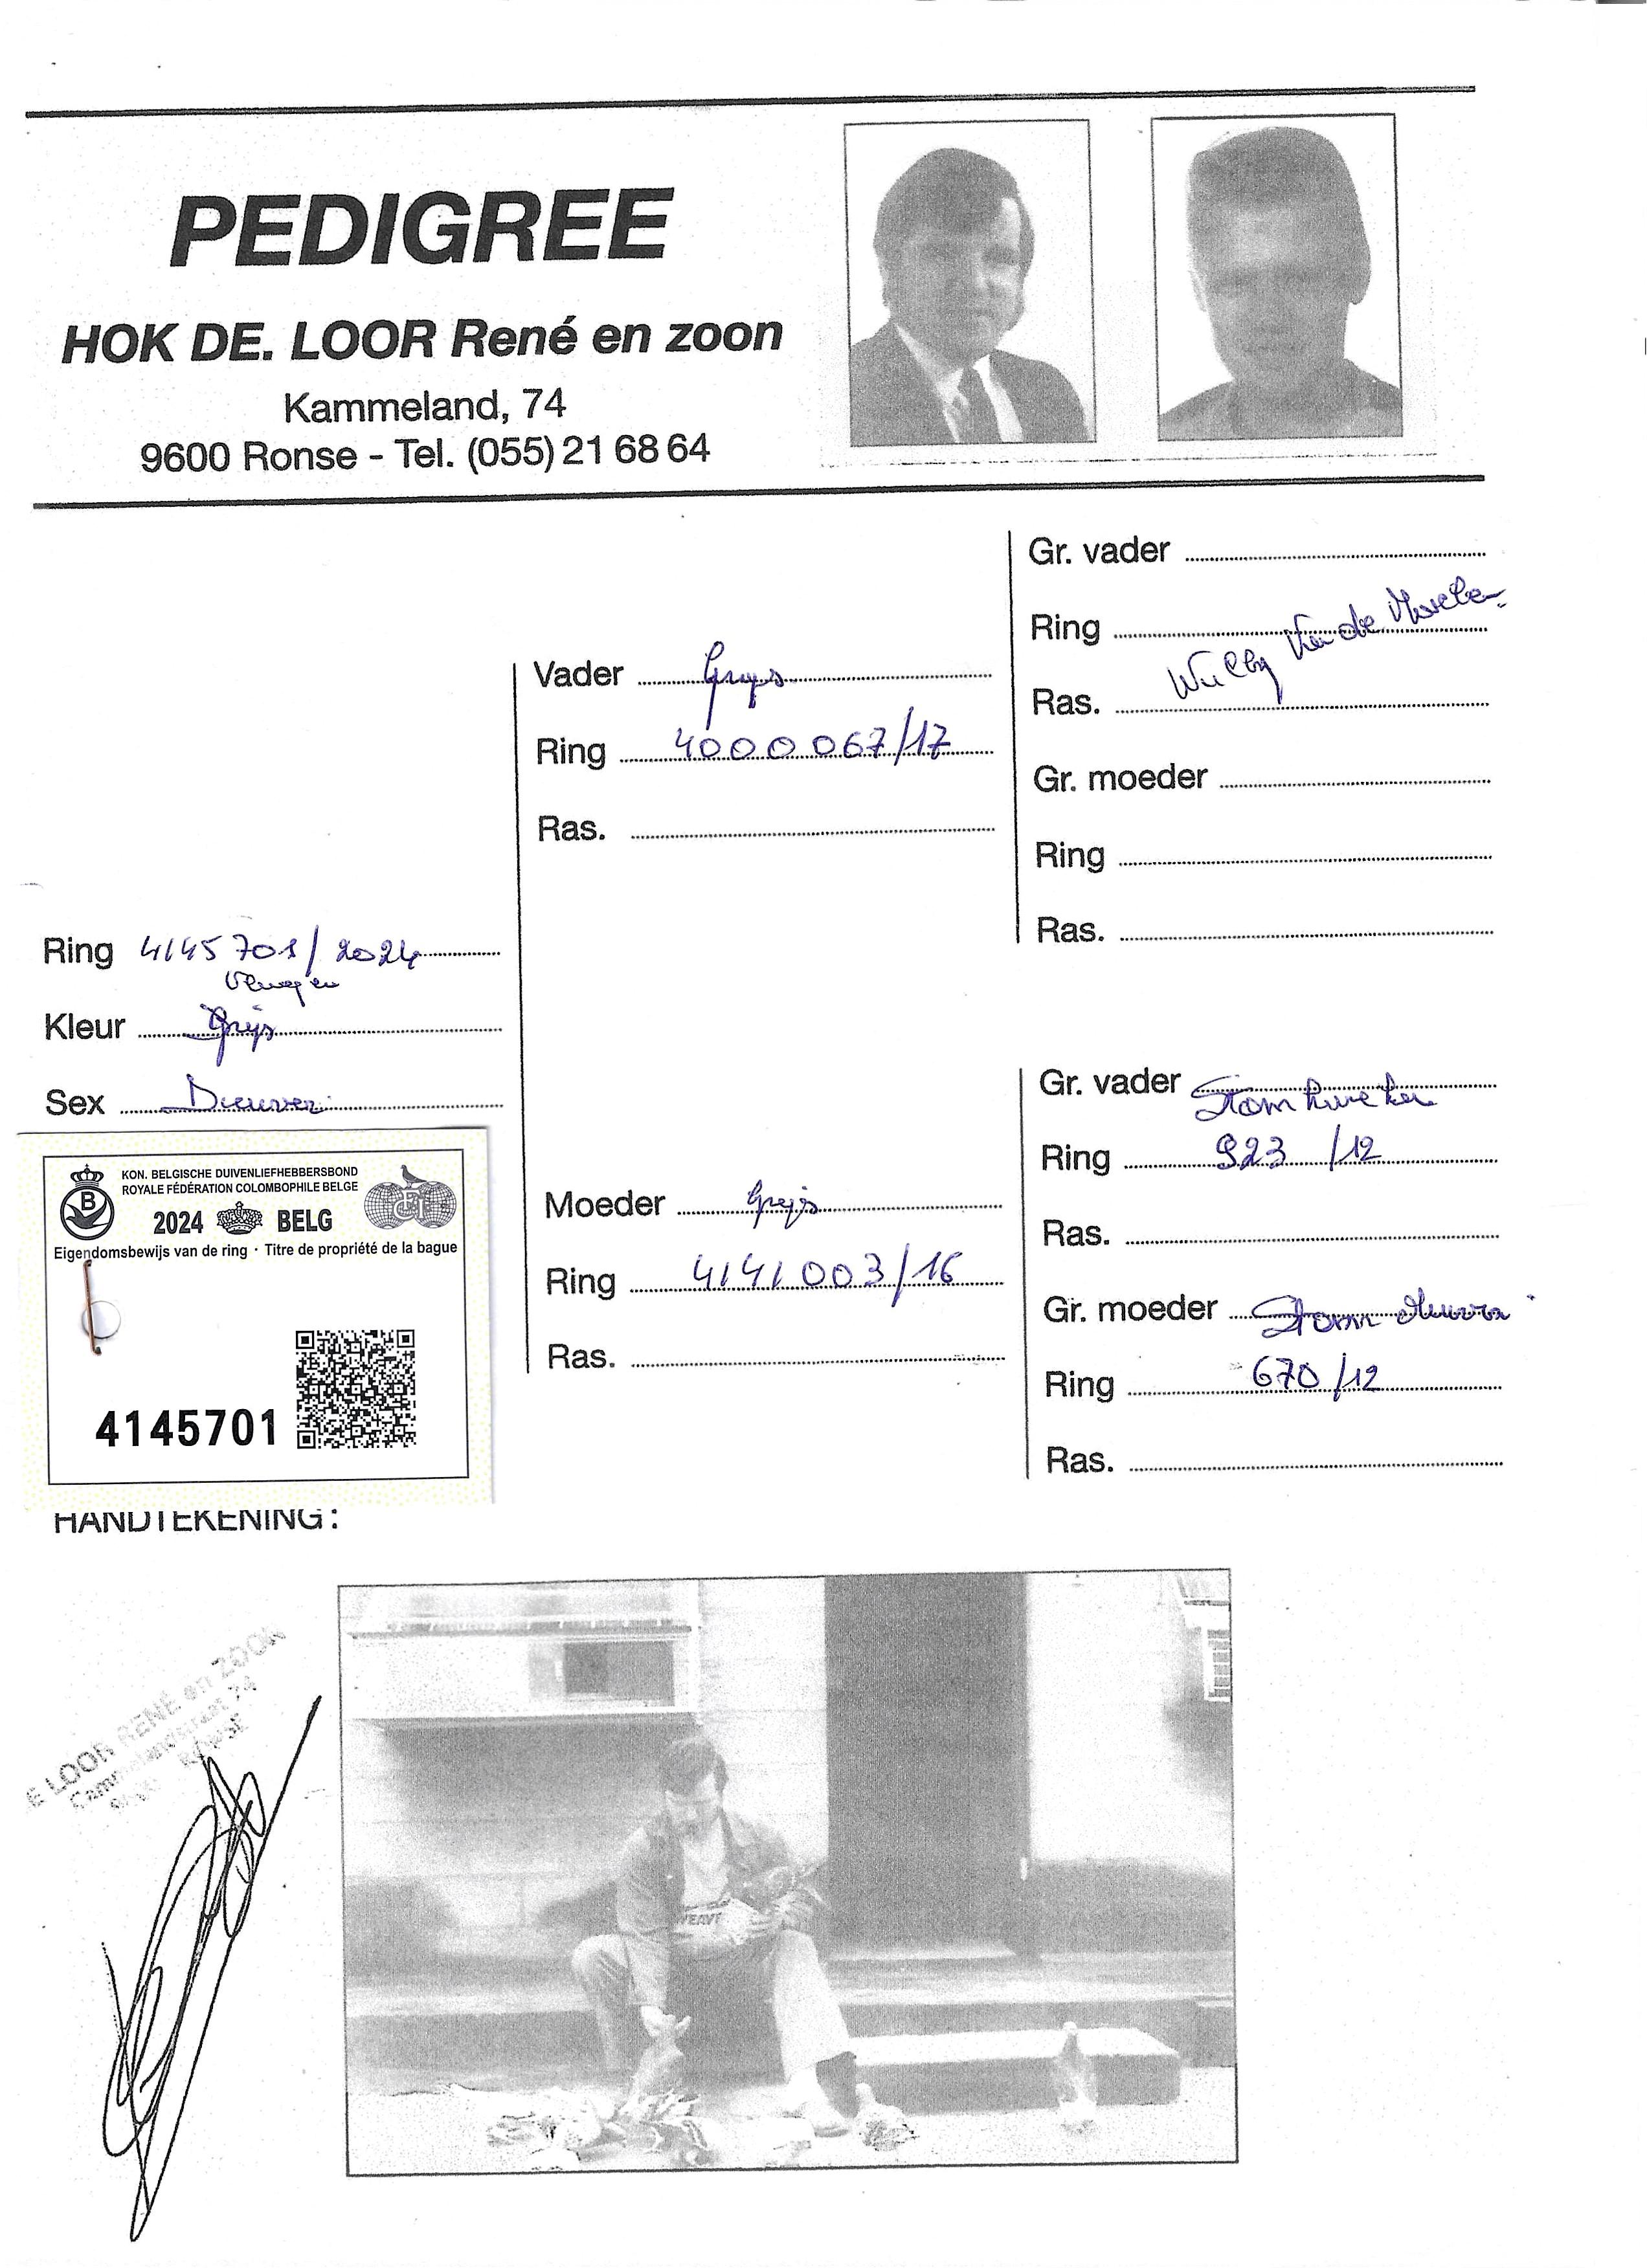 PEDIGREE
HOK DE. LOOR René en zoon
Kammeland, 74
9600 Ronse - Tel. (055) 21 68 64
Ring 4145701/2024
Kleur Grijs
Sex
KON. BELGISCHE DUIVENLIEFHEBBERSBOND
ROYALE FÉDÉRATION COLOMBOPHILE BELGE
B
2024 BELG
FCI
Eigendomsbewijs van de ring · Titre de propriété de la bague
4145701
HANDTEKENING:
Vader Grijs
Ring 4000067/17
Ras.
Moeder Grijs
Ring 4141003/16
Ras.
Gr. vader
Ring
Ras. Willy
Gr. moeder
Ring
Ras.
Gr. vader Stamkweker
Ring 923 /12
Ras.
Gr. moeder Stam
Ring 670/12
Ras.
E LOOR RENÉ en ZOON